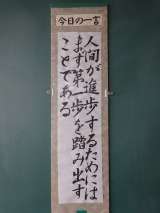 今日の一言
人間が進歩するためには
まず第一歩を踏み出す
ことである